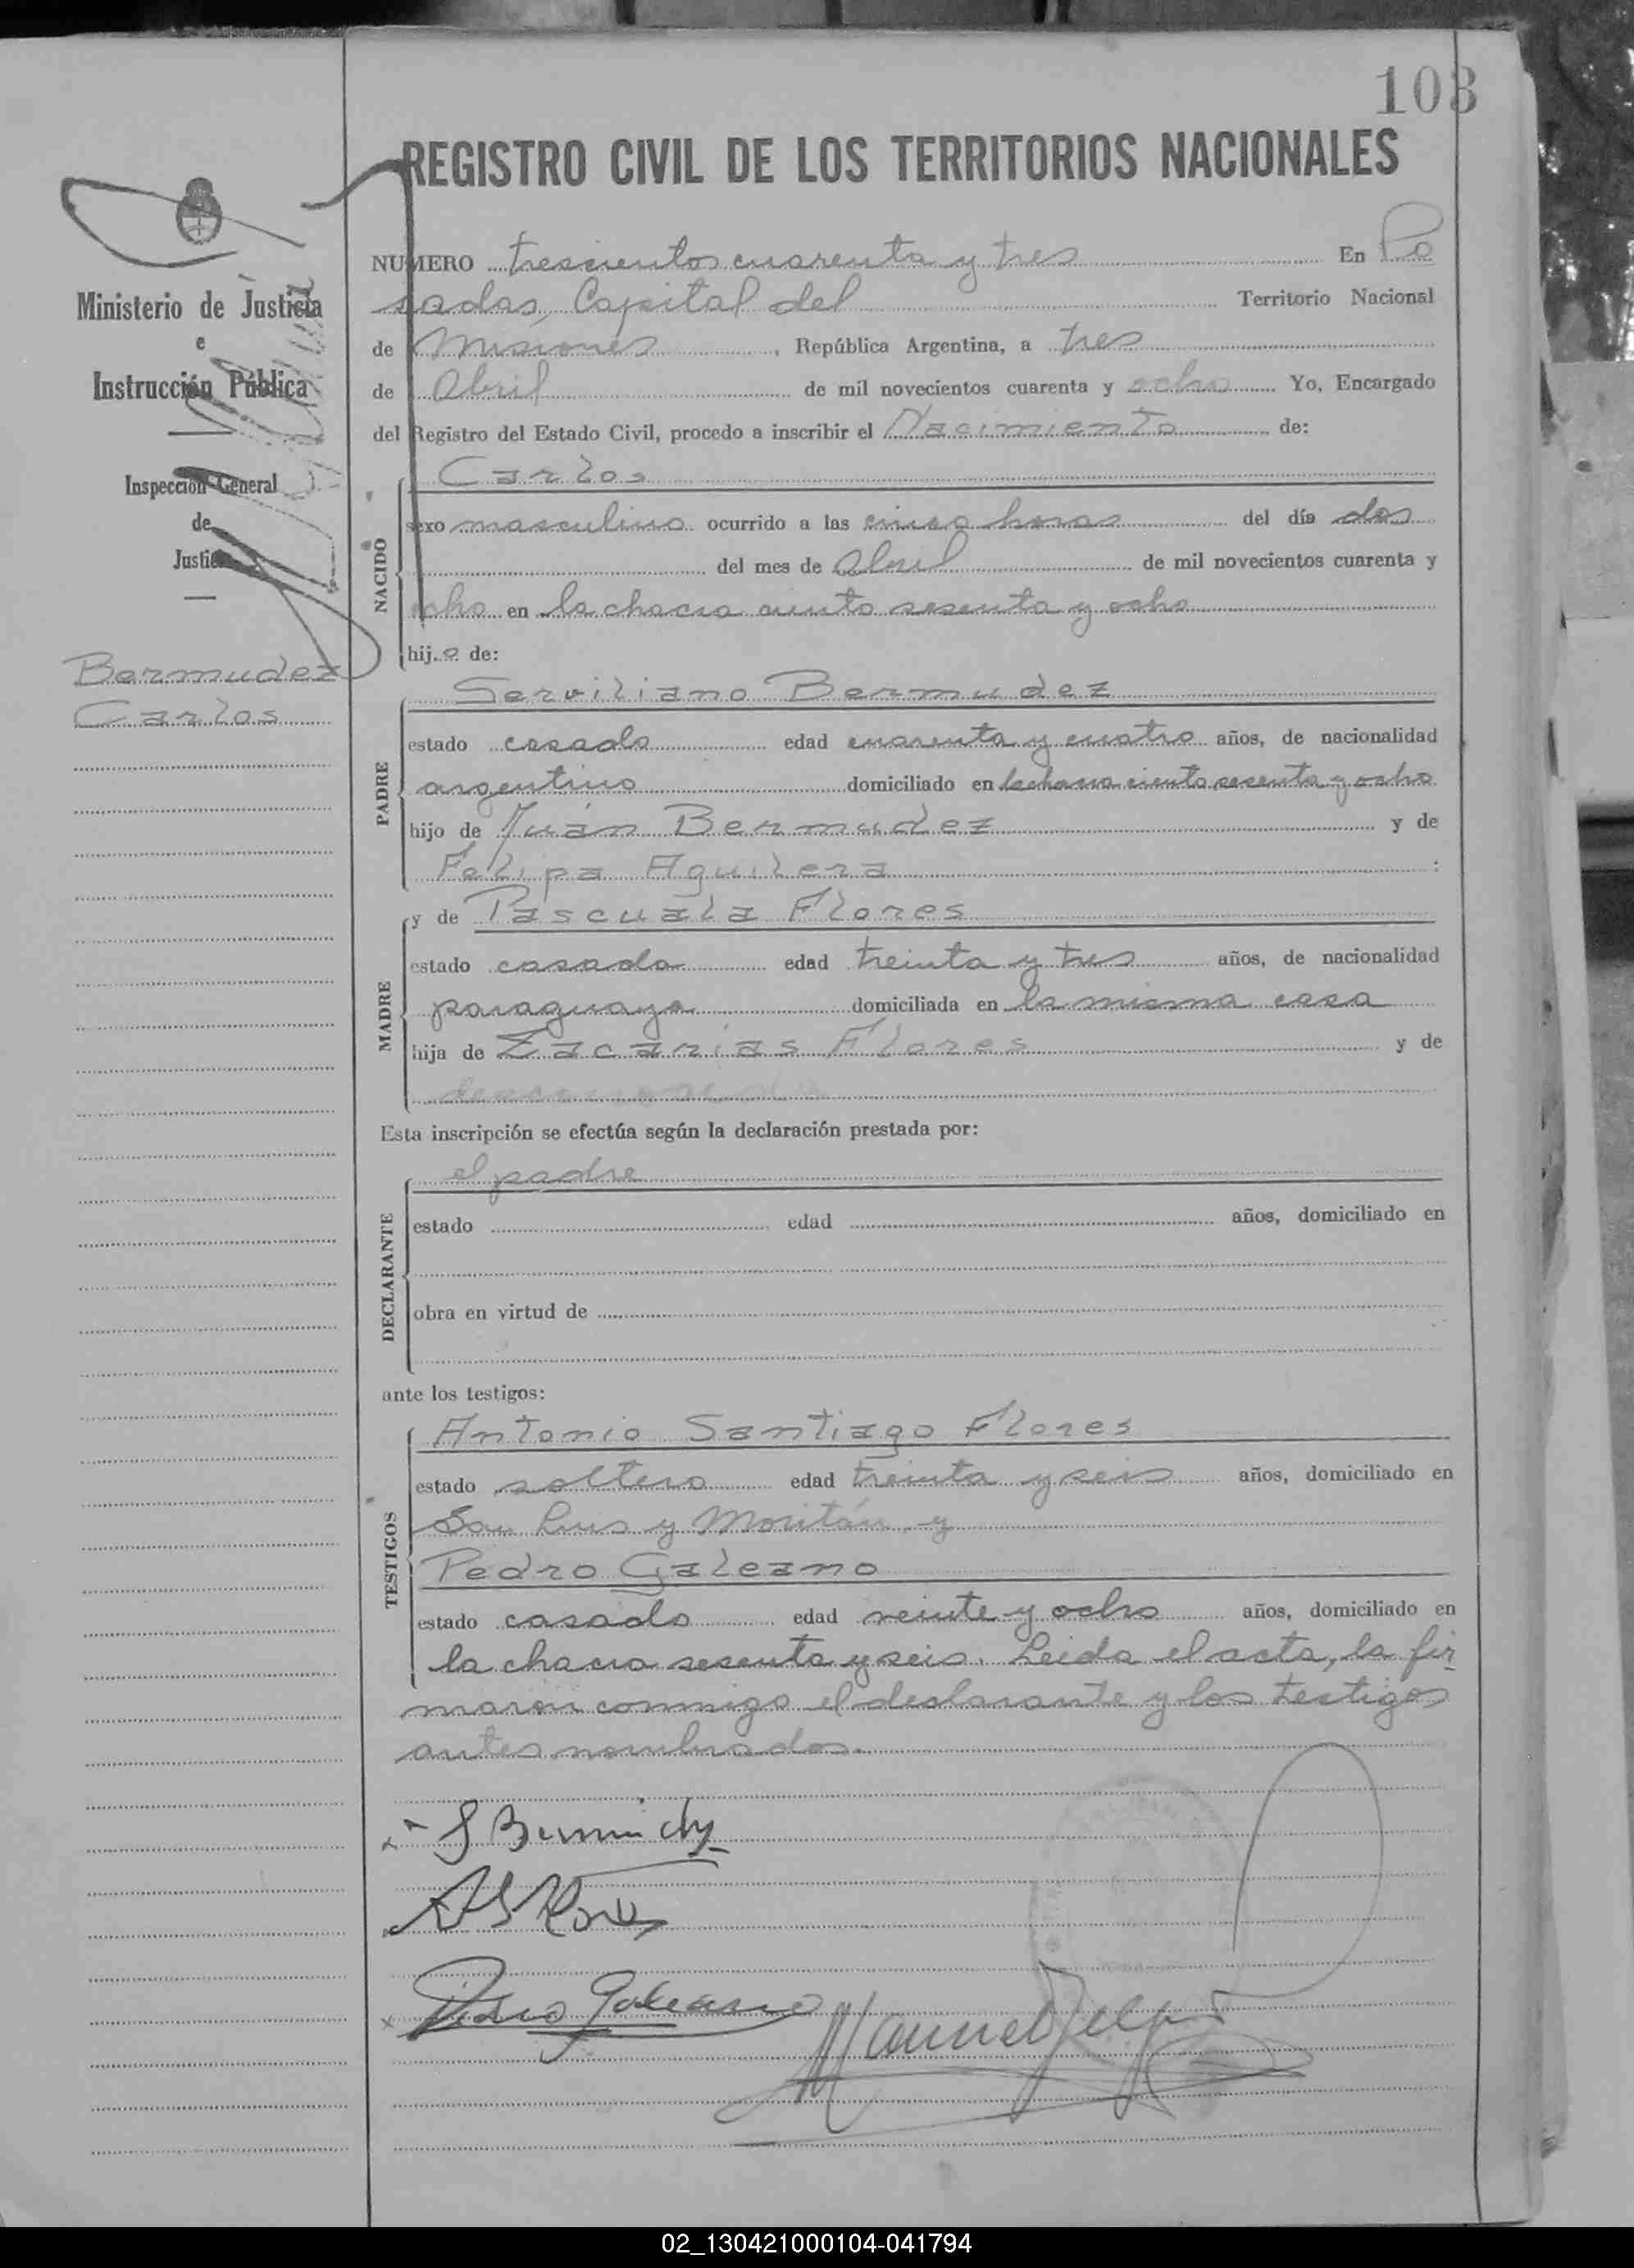 103
REGISTRO CIVIL DE LOS TERRITORIOS NACIONALES
Ministerio de Justicia
e
Instrucción Pública
Inspección General
de
Justicia
Bermudez
Carlos
NUMERO trescientos cuarenta y tres En Po
sadas, Capital del Territorio Nacional
de Misiones, República Argentina, a tres
de Abril de mil novecientos cuarenta y ocho Yo, Encargado
del Registro del Estado Civil, procedo a inscribir el Nacimiento de:
NACIDO
Carlos
sexo masculino ocurrido a las cinco horas del día dos
del mes de Abril de mil novecientos cuarenta y
ocho en la chacra ciento sesenta y ocho
hijo de:
PADRE
Serviliano Bermudez
estado casado edad cuarenta y cuatro años, de nacionalidad
argentino domiciliado en la chacra ciento sesenta y ocho
hijo de Juan Bermudez y de
Felipa Aguilera :
MADRE
y de Pascuala Flores
estado casada edad treinta y tres años, de nacionalidad
paraguaya domiciliada en la misma casa
hija de Zacarias Flores y de
Esta inscripción se efectúa según la declaración prestada por:
DECLARANTE
el padre
estado edad años, domiciliado en
obra en virtud de
ante los testigos:
TESTIGOS
Antonio Santiago Flores
estado soltero edad treinta y seis años, domiciliado en
San Luis y y
Pedro Galeano
estado casado edad veinte y ocho años, domiciliado en
la chacra sesenta y seis. Leida el acta, la fir
maron conmigo el declarante y los testigos
antes nombrados.
A S Flores
Pedro Galeano
Manuel
02_130421000104-041794